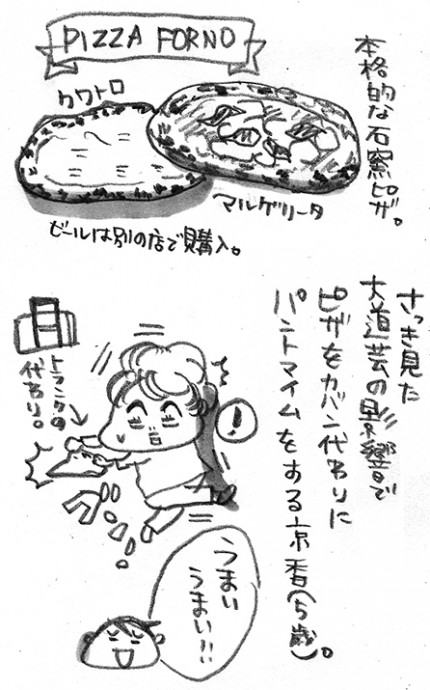 PIZZA FORNO
本格的な石窯ピザ。
クワトロ
マルゲリータ
ビールは別の店で購入。
さっき見た
大道芸の影響で
ピザをカバン代わりに
パントマイムをする京香(5歳)。
トランクの
代わり。
!
うまい
うまい!!